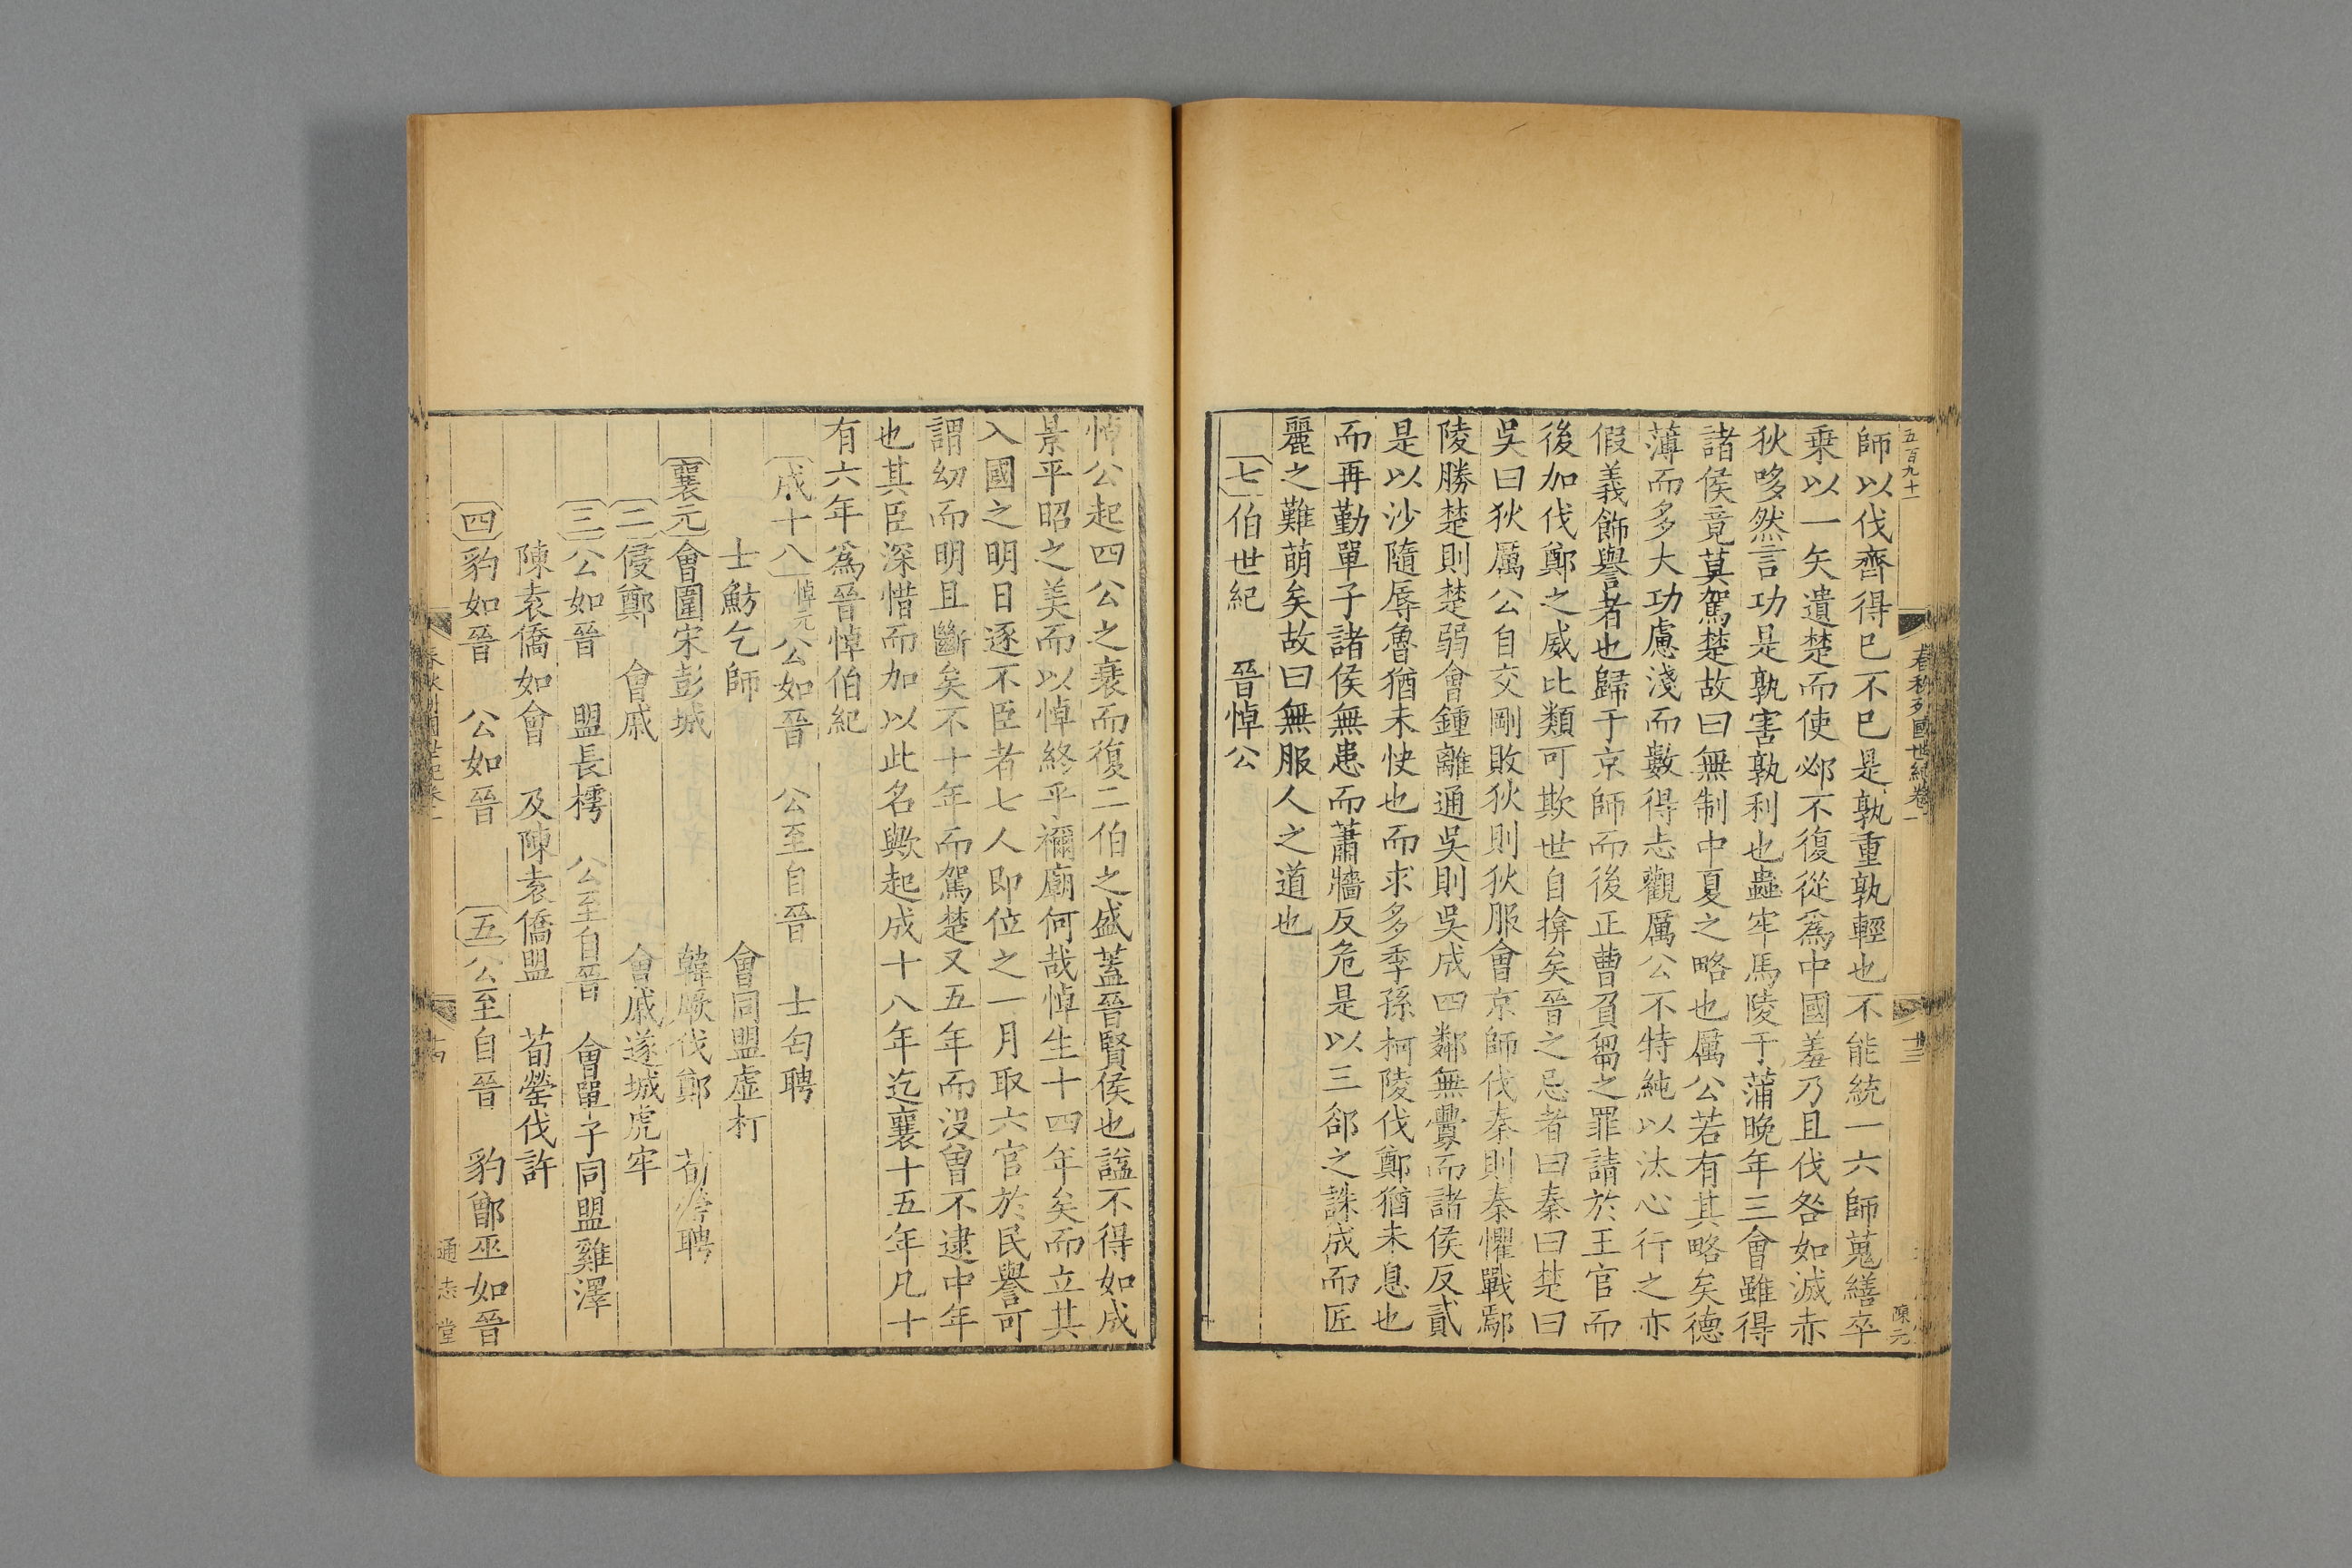 五百九十一
春秋列國世紀卷一
十三
陳元
師以伐齊得已不已是孰重孰輕也不能統一六師蒐繕卒
乗以一矢遺楚而使䢴不復從爲中國羞乃且伐咎如滅赤
狄哆然言功是孰害孰利也蟲牢馬陵于蒲晚年三會雖得
諸侯竟莫駕楚故曰無制中夏之略也厲公若有其略矣德
薄而多大功慮淺而數得志觀厲公不特純以汰心行之亦
假義飾譽者也歸于京師而後正曹負芻之罪請於王官而
後加伐鄭之威比類可欺世自揜矣晉之忌者曰秦曰楚曰
吳曰狄厲公自交剛敗狄則狄服會京師伐秦則秦懼戰鄢
陵勝楚則楚弱會鍾離通吳則吳成四鄰無釁而諸侯反貳
是以沙隨辱魯猶未快也而求多季孫柯陵伐鄭猶未息也
而再勤單子諸侯無患而蕭牆反危是以三郤之誅成而匠
麗之難萌矣故曰無服人之道也
七 伯世紀 晉悼公
悼公起四公之衰而復二伯之盛蓋晉賢侯也諡不得如成
景平昭之美而以悼終乎禰廟何哉悼生十四年矣而立其
入國之明日逐不臣者七人即位之一月取六官於民譽可
謂幼而明且斷矣不十年而駕楚又五年而沒曾不逮中年
也其臣深惜而加以此名歟起成十八年迄襄十五年凡十
有六年爲晉悼伯紀
成十八 悼元 公如晉 公至自晉 士匄聘
士魴乞師 會同盟虛朾
襄元 會圍宋彭城 韓厥伐鄭 荀罃聘
二 侵鄭 會戚 會戚遂城虎牢
三 公如晉 盟長樗 公至自晉 會單子同盟雞澤
陳袁僑如會 及陳袁僑盟 荀罃伐許
四 豹如晉 公如晉 五 公至自晉 豹鄫巫如晉
春秋列國世紀卷一
十四
通志堂